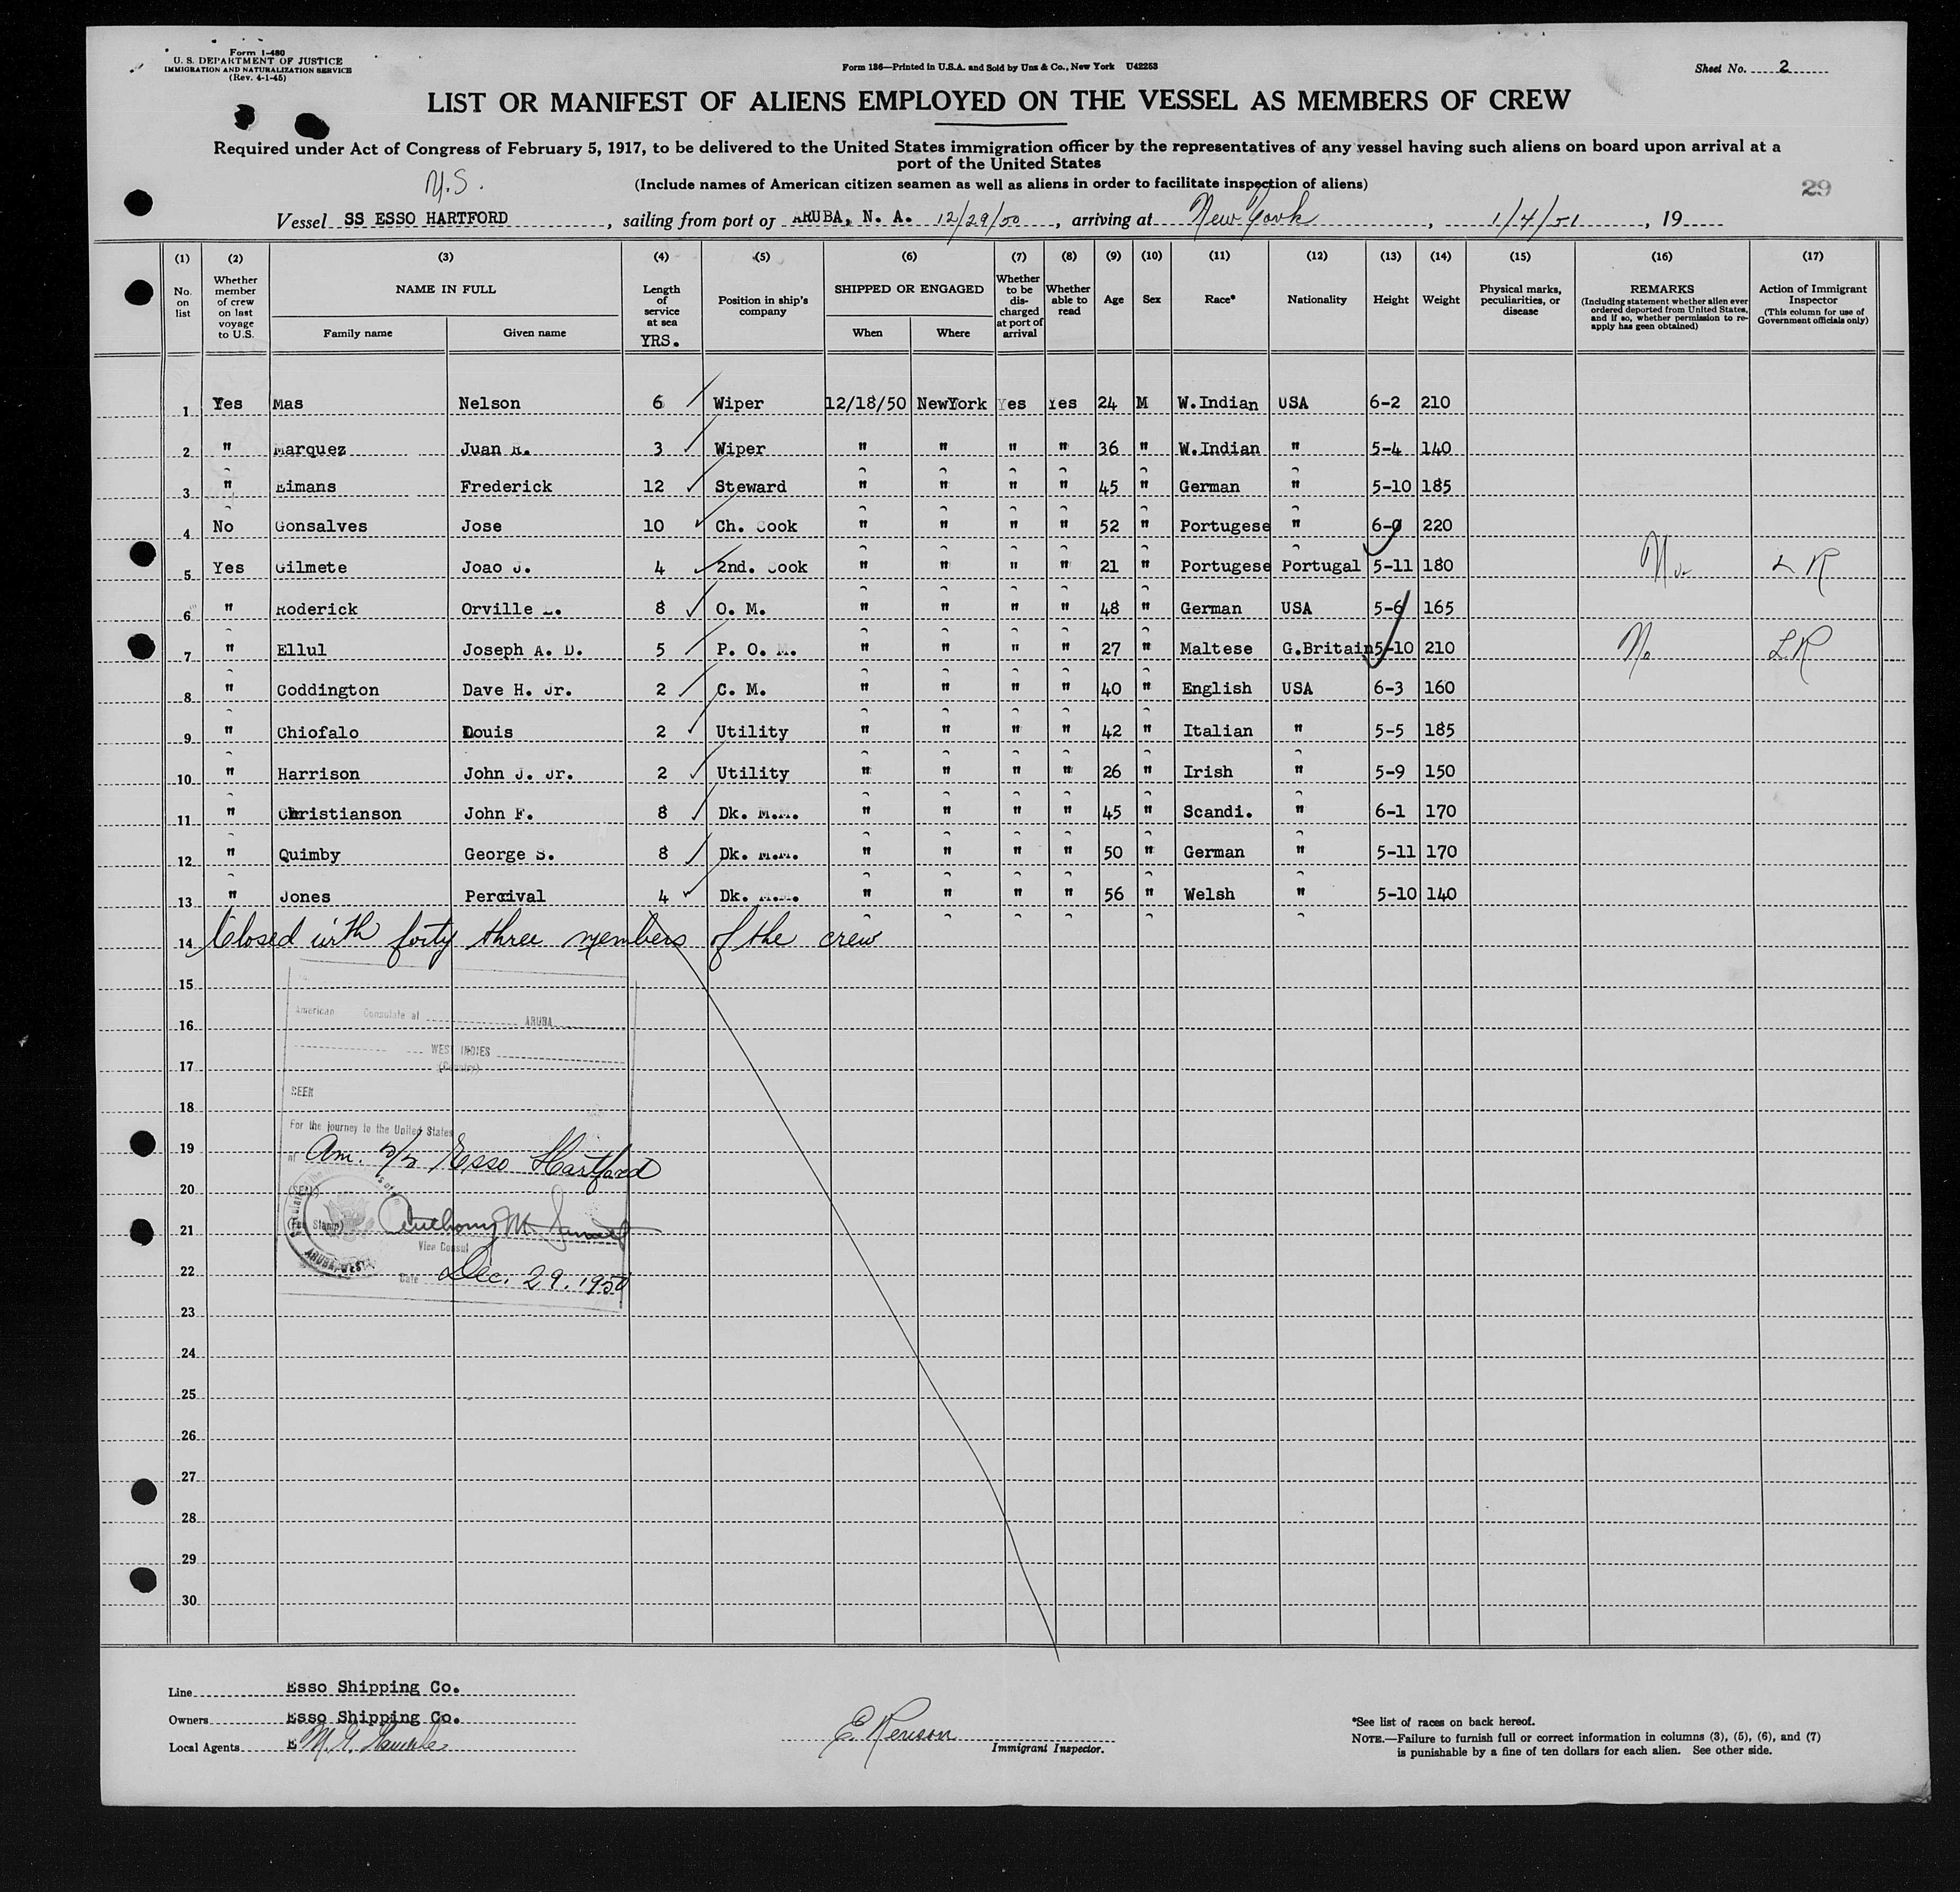 Form I-480
U. S. DEPARTMENT OF JUSTICE
IMMIGRATION AND NATURALIZATION SERVICE
(Rev. 4-1-45)
Form 186—Printed in U.S.A. and Sold by Unz & Co., New York U42253
Sheet No. 2
LIST OR MANIFEST OF ALIENS EMPLOYED ON THE VESSEL AS MEMBERS OF CREW
Required under Act of Congress of February 5, 1917, to be delivered to the United States immigration officer by the representatives of any vessel having such aliens on board upon arrival at a
port of the United States
(Include names of American citizen seamen as well as aliens in order to facilitate inspection of aliens)
29
Vessel SS ESSO HARTFORD, sailing from port of ARUBA, N. A. 12/29/50, arriving at New York, 1/4/51, 19
(1) (2) (3) (4) (5) (6) (7) (8) (9) (10) (11) (12) (13) (14) (15) (16) (17)
No. on list
Whether member of crew on last voyage to U.S.
NAME IN FULL
Family name Given name
Length of service at sea YRS.
Position in ship's company
SHIPPED OR ENGAGED
When Where
Whether to be discharged at port of arrival
Whether able to read
Age
Sex
Race*
Nationality
Height
Weight
Physical marks, peculiarities, or disease
REMARKS
(Including statement whether alien ever ordered deported from United States, and if so, whether permission to reapply has geen obtained)
Action of Immigrant Inspector
(This column for use of Government officials only)
1 Yes Mas Nelson 6 Wiper 12/18/50 NewYork Yes Yes 24 M W.Indian USA 6-2 210
2 " Marquez Juan R. 3 Wiper " " " " 36 " W.Indian " 5-4 140
3 " Eimans Frederick 12 Steward " " " " 45 " German " 5-10 185
4 No Gonsalves Jose 10 Ch. Cook " " " " 52 " Portugese " 6-0 220
5 Yes Gilmete Joao J. 4 2nd. Cook " " " " 21 " Portugese Portugal 5-11 180 No LR
6 " Roderick Orville L. 8 O. M. " " " " 48 " German USA 5-6 165
7 " Ellul Joseph A. D. 5 P. O. M. " " " " 27 " Maltese G.Britain 5-10 210 No LR
8 " Coddington Dave H. Jr. 2 C. M. " " " " 40 " English USA 6-3 160
9 " Chiofalo Louis 2 Utility " " " " 42 " Italian " 5-5 185
10 " Harrison John J. Jr. 2 Utility " " " " 26 " Irish " 5-9 150
11 " Christianson John F. 8 Dk. M.M. " " " " 45 " Scandi. " 6-1 170
12 " Quimby George S. 8 Dk. M.M. " " " " 50 " German " 5-11 170
13 " Jones Percival 4 Dk. M.M. " " " " 56 " Welsh " 5-10 140
14 Closed with forty three members of the crew
15
16
17
18
19
20
21
22
23
24
25
26
27
28
29
30
American Consulate at ARUBA
WEST INDIES
(Country)
SEEN
For the journey to the United States
of Am. S/S Esso Hartford
(SEAL)
(Fee Stamp)
Anthony M.
Vice Consul
Date Dec. 29. 1950
Line Esso Shipping Co.
Owners Esso Shipping Co.
Local Agents
E. Renison
Immigrant Inspector.
*See list of races on back hereof.
NOTE.—Failure to furnish full or correct information in columns (3), (5), (6), and (7)
is punishable by a fine of ten dollars for each alien. See other side.